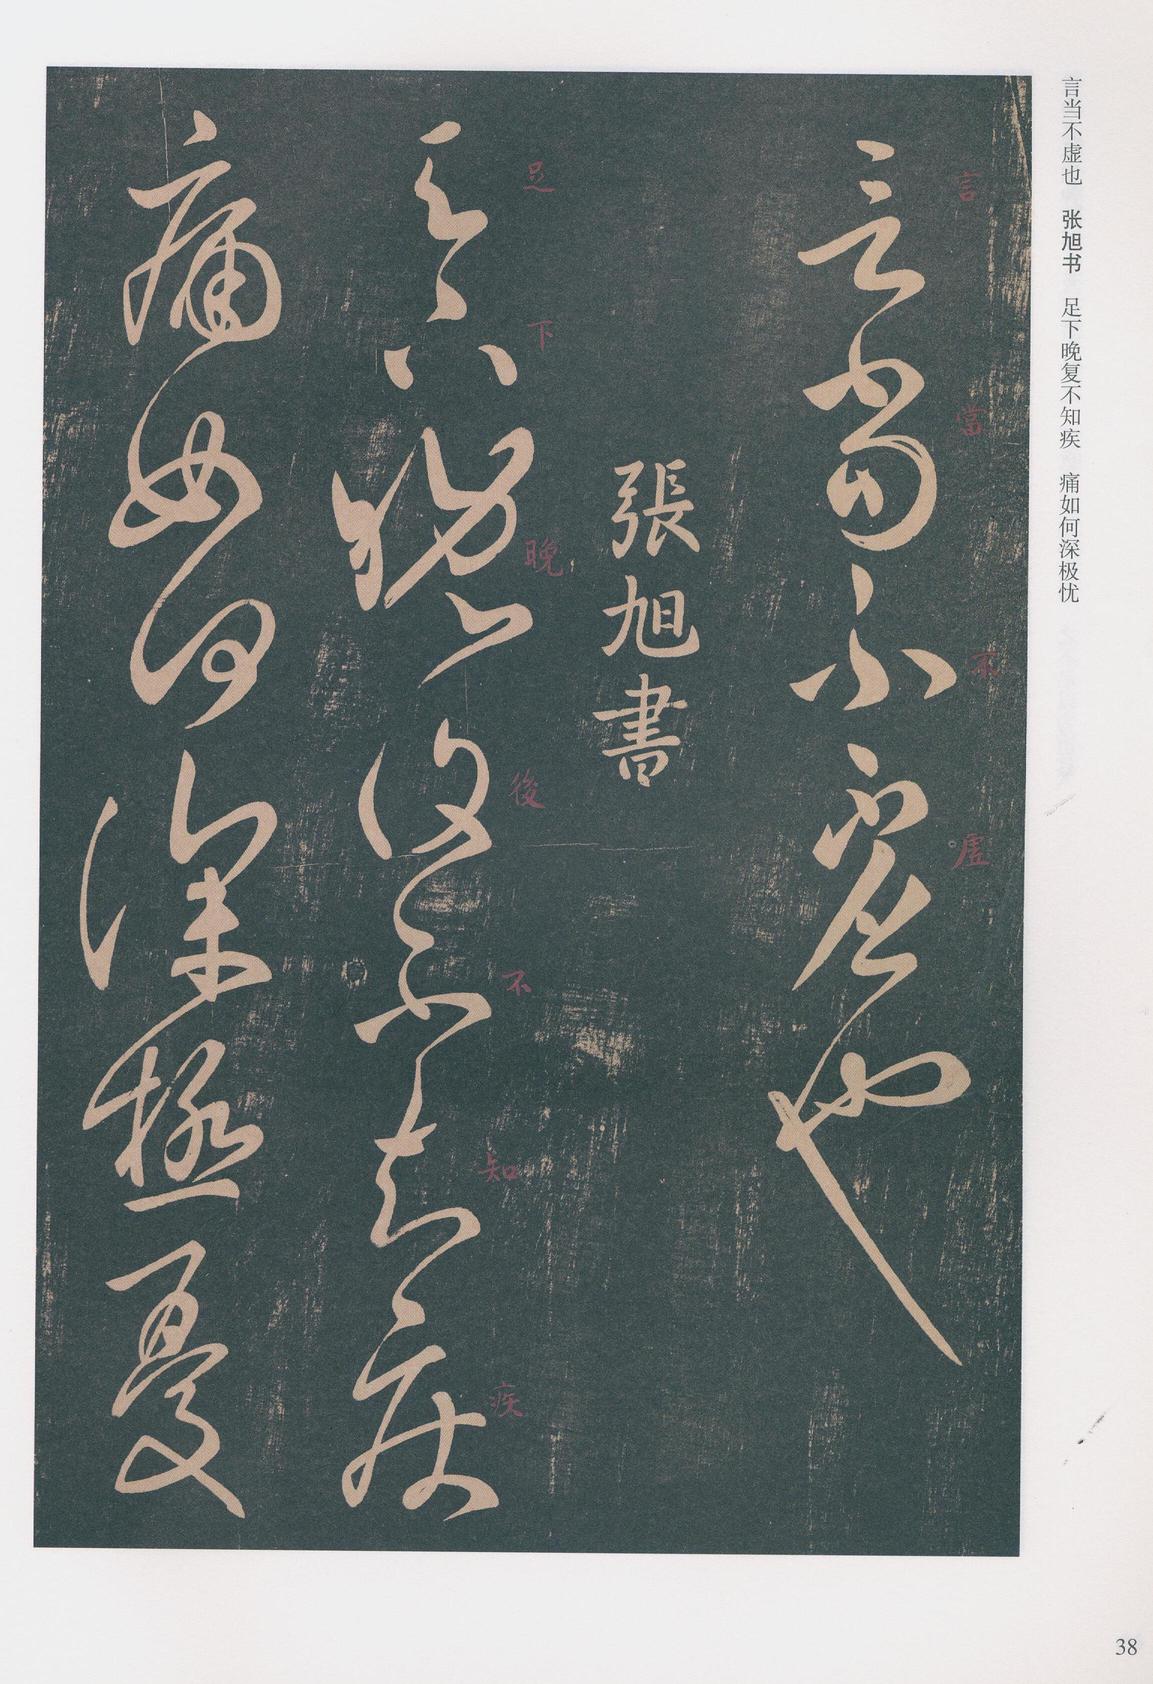 言当不虚也　张旭书　足下晚复不知疾　痛如何深极忧
言當不虛也
言當不虛
張旭書
足下晚復不知疾
足下晚後不知疾
痛如何深極憂
38